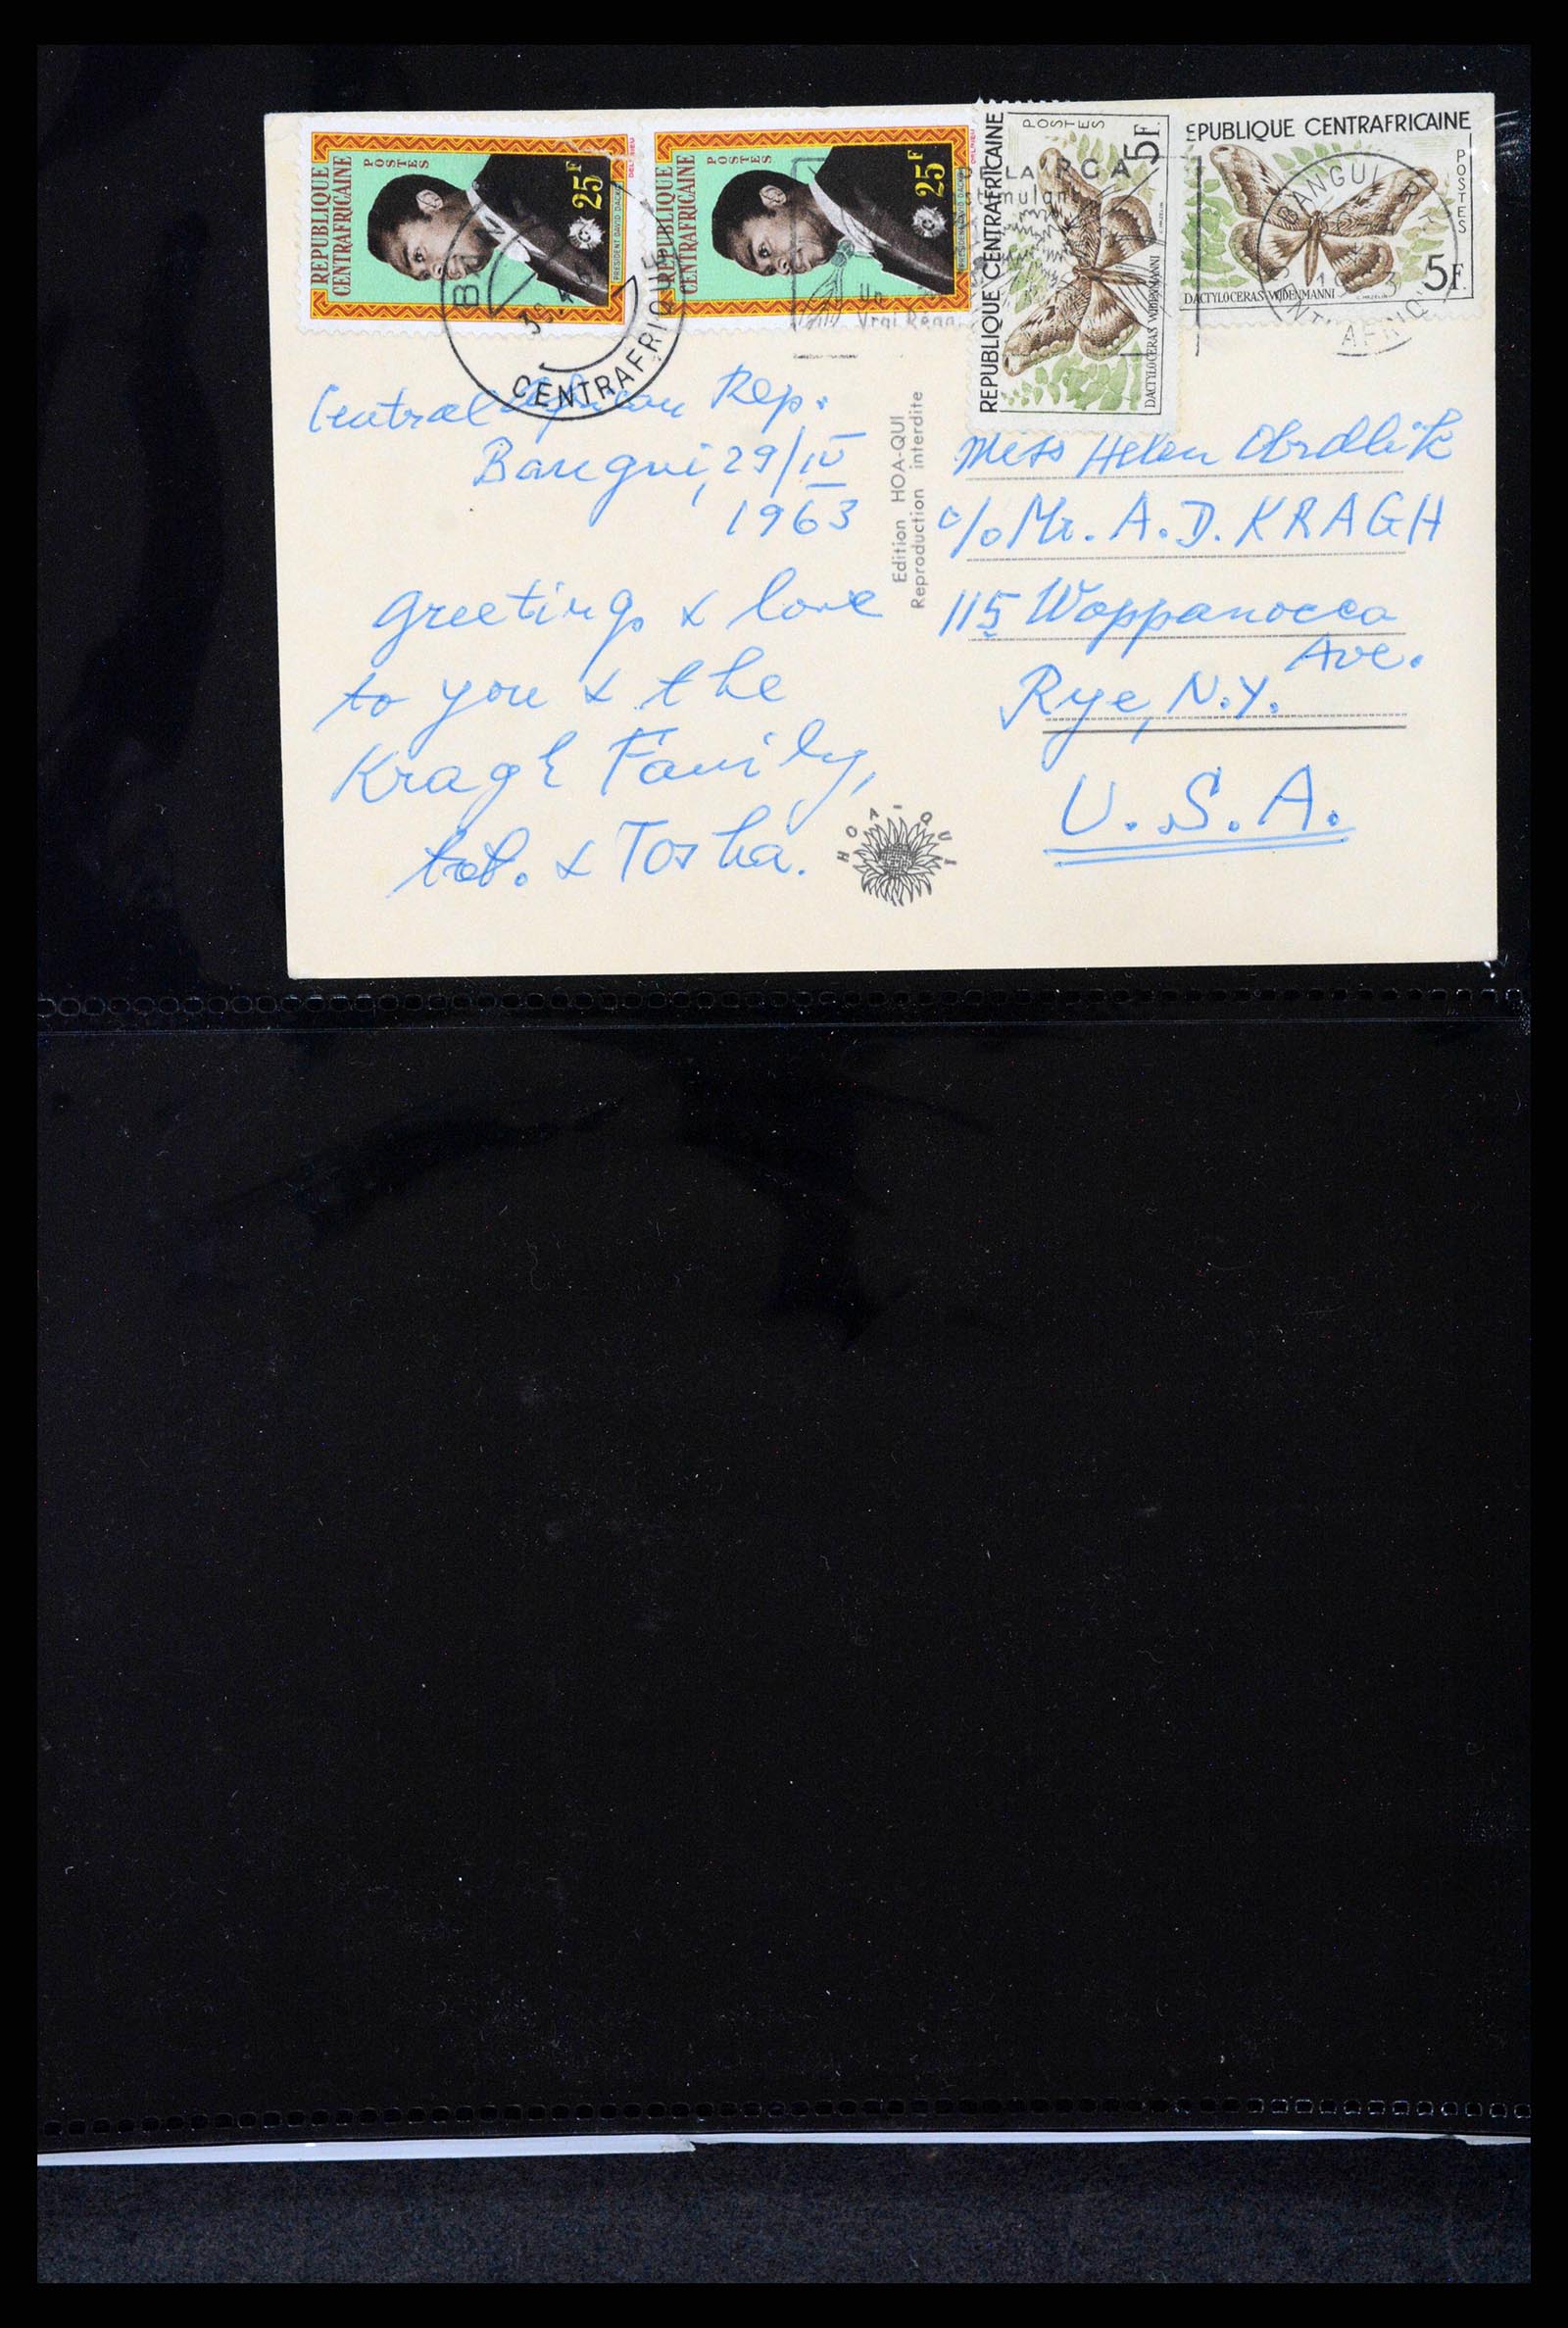 REPUBLIQUE
CENTRAFRICAINE
POSTES
25F
PRESIDENT DAVID DACKO
REPUBLIQUE
CENTRAFRICAINE
POSTES
25F
PRESIDENT DAVID DACKO
REPUBLIQUE CENTRAFRICAINE
POSTES
5F.
DACTYLOCERAS WIDENMANNI
EPUBLIQUE CENTRAFRICAINE
POSTES
5F.
DACTYLOCERAS WIDENMANNI
CENTRAFRIQUE
LA RCA
Un
Vrai
BANGUI R.P.
Central African Rep.
Bangui, 29/IV
1963
Greetings & love
to you & the
Kragh Family,
& Tosha.
Edition HOA-QUI
Reproduction interdite
HOA-QUI
Miss Helen Obrdlik
c/o Mr. A.D. KRAGH
115 Wappanocca
Ave.
Rye, N.Y.
U.S.A.